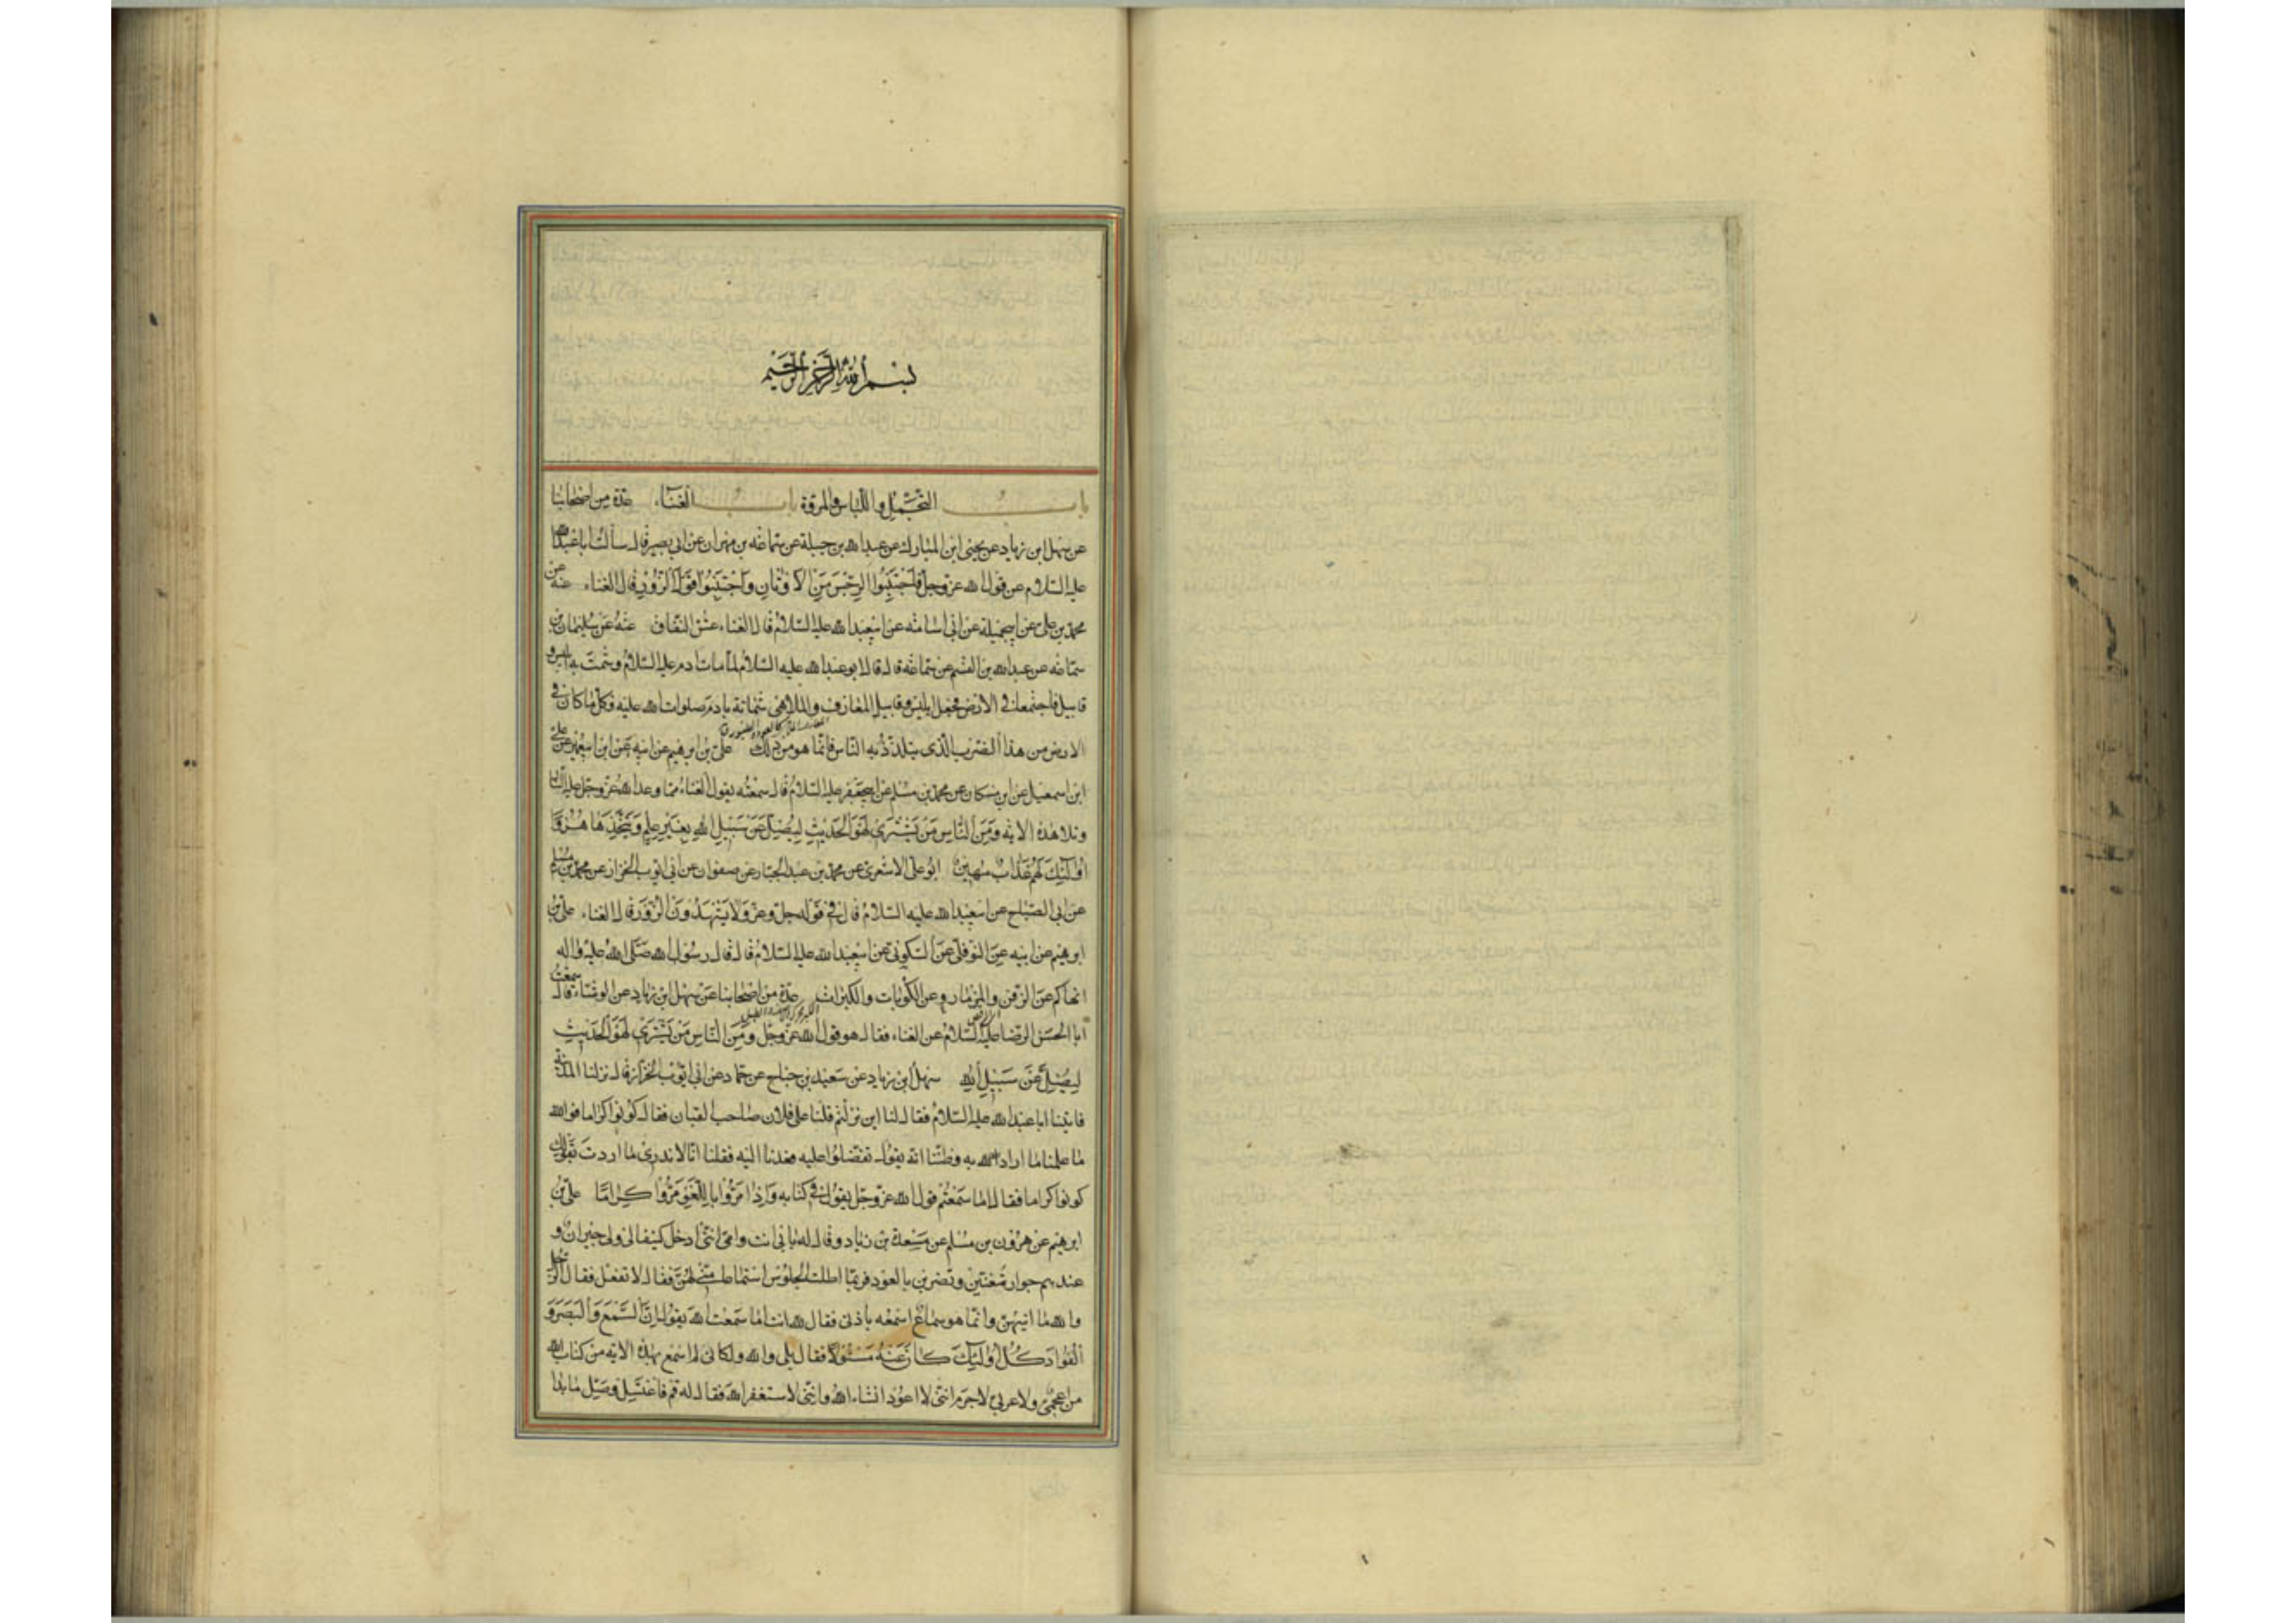 بسم الله الرحمن الرحيم
باب التجمل واللباس والمروة باب الغناء عدة من اصحابنا
عن سهل ابن زياد عن يحيى ابن المبارك عن عبدالله بن جبلة عن سماعه بن مهران عن ابى بصير قال سالت ابا عبدالله
عليه السلام عن قول الله عز وجل فَاجْتَنِبُوا الرِّجْسَ مِنَ الْاَوْثَانِ وَاجْتَنِبُوا قَوْلَ الزُّورِ قال الغناء عنه عن
محمد بن على عن ابى جميلة عن ابى اسامه عن ابيعبدالله عليه السلام قال الغناء عش النفاق عنه عن سليمان بن
سماعه عن عبدالله بن القسم عن سماعه قال قال ابو عبدالله عليه السلام لما مات ادم عليه السلام وشمت به ابليس و
قابيل فاجتمعا فى الارض فجعل ابليس وقابيل المعازف والملاهى شماتة بادم صلوات الله عليه فكل ما كان فى
الارض من هذا الضرب الذى يتلذذ به الناس فانما هو من ذلك على بن ابرهيم عن ابيه عن ابن ابيعمير عن على
ابن اسمعيل عن ابن مسكان عن محمد بن مسلم عن ابيجعفر عليه السلام قال سمعته يقول الغناء مما وعد الله عز وجل عليه النار
وتلا هذه الايه وَمِنَ النَّاسِ مَنْ يَشْتَرِى لَهْوَ الْحَدِيثِ لِيُضِلَّ عَنْ سَبِيلِ اللهِ بِغَيْرِ عِلْمٍ وَيَتَّخِذَهَا هُزُوًا
اُولٰئِكَ لَهُمْ عَذَابٌ مُهِينٌ ابو على الاشعرى عن محمد بن عبد الجبار عن صفوان عن ابى ايوب الخزاز عن محمد بن مسلم
عن ابى الصباح عن ابيعبدالله عليه السلام قال فى قوله جل وعز وَلَا يَشْهَدُونَ الزُّورَ قال الغناء على بن
ابرهيم عن ابيه عن النوفلى عن السكونى عن ابيعبدالله عليه السلام قال قال رسول الله صلى الله عليه واله
انهاكم عن الزفن والمزمار وعن الكوبات والكبرات عدة من اصحابنا عن سهل ابن زياد عن الوشاء قال سمعت
ابا الحسن الرضا عليه السلام عن الغناء فقال هو قول الله عز وجل وَمِنَ النَّاسِ مَنْ يَشْتَرِى لَهْوَ الْحَدِيثِ
لِيُضِلَّ عَنْ سَبِيلِ اللهِ سهل ابن زياد عن سعيد بن جناح عن حماد عن ابى ايوب الخزاز قال نزلنا المدينة
فاتينا ابا عبدالله عليه السلام فقال لنا اين نزلتم قلنا على فلان صاحب القيان فقال كونوا كراما فو الله
ما علمنا ما اراد الله به وظننا انه يقول تفضلوا عليه فعدنا اليه فقلنا انا لا ندرى ما اردت بقولك
كونوا كراما فقال اما سمعتم قول الله عز وجل يقول فى كتابه وَاِذَا مَرُّوا بِاللَّغْوِ مَرُّوا كِرَامًا على بن
ابرهيم عن هرون بن مسلم عن مسعدة بن زياد وقال له بابى انت وامى اننى ادخل كنيفا لى ولى جيران و
عندهم جوار تغنين وتضربن بالعود فربما اطلت الجلوس استماعا منى لهن فقال لا تفعل فقال الرجل
والله ما اتيهن وانما هو سماع اسمعه باذنى فقال لله انت اما سمعت الله يقول اِنَّ السَّمْعَ وَالْبَصَرَ وَ
الْفُؤَادَ كُلُّ اُولٰئِكَ كَانَ عَنْهُ مَسْئُولًا فقال بلى والله ولكانى لم اسمع بهذه الايه من كتاب الله
من اعجمى ولا عربى لا جرم اننى لا اعود انشاء الله واننى لاستغفر الله فقال له قم فاغتسل وصل ما بدا